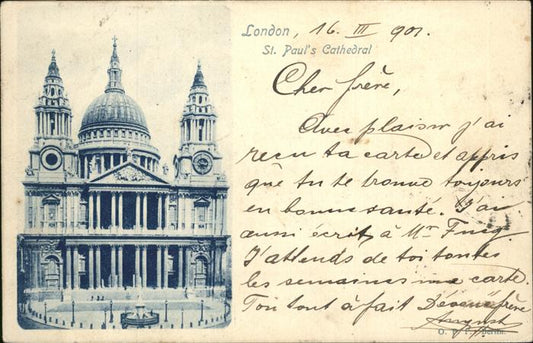 London, 16. III 901.
St. Paul's Cathedral
Cher frère,
Avec plaisir j'ai
reçu ta carte et appris
que tu te trouve toujours
en bonne santé. J'ai
aussi écrit à Mr
J'attends de toi toutes
les semaines une carte.
Ton tout à fait Dévoué frère
August
Berlin.